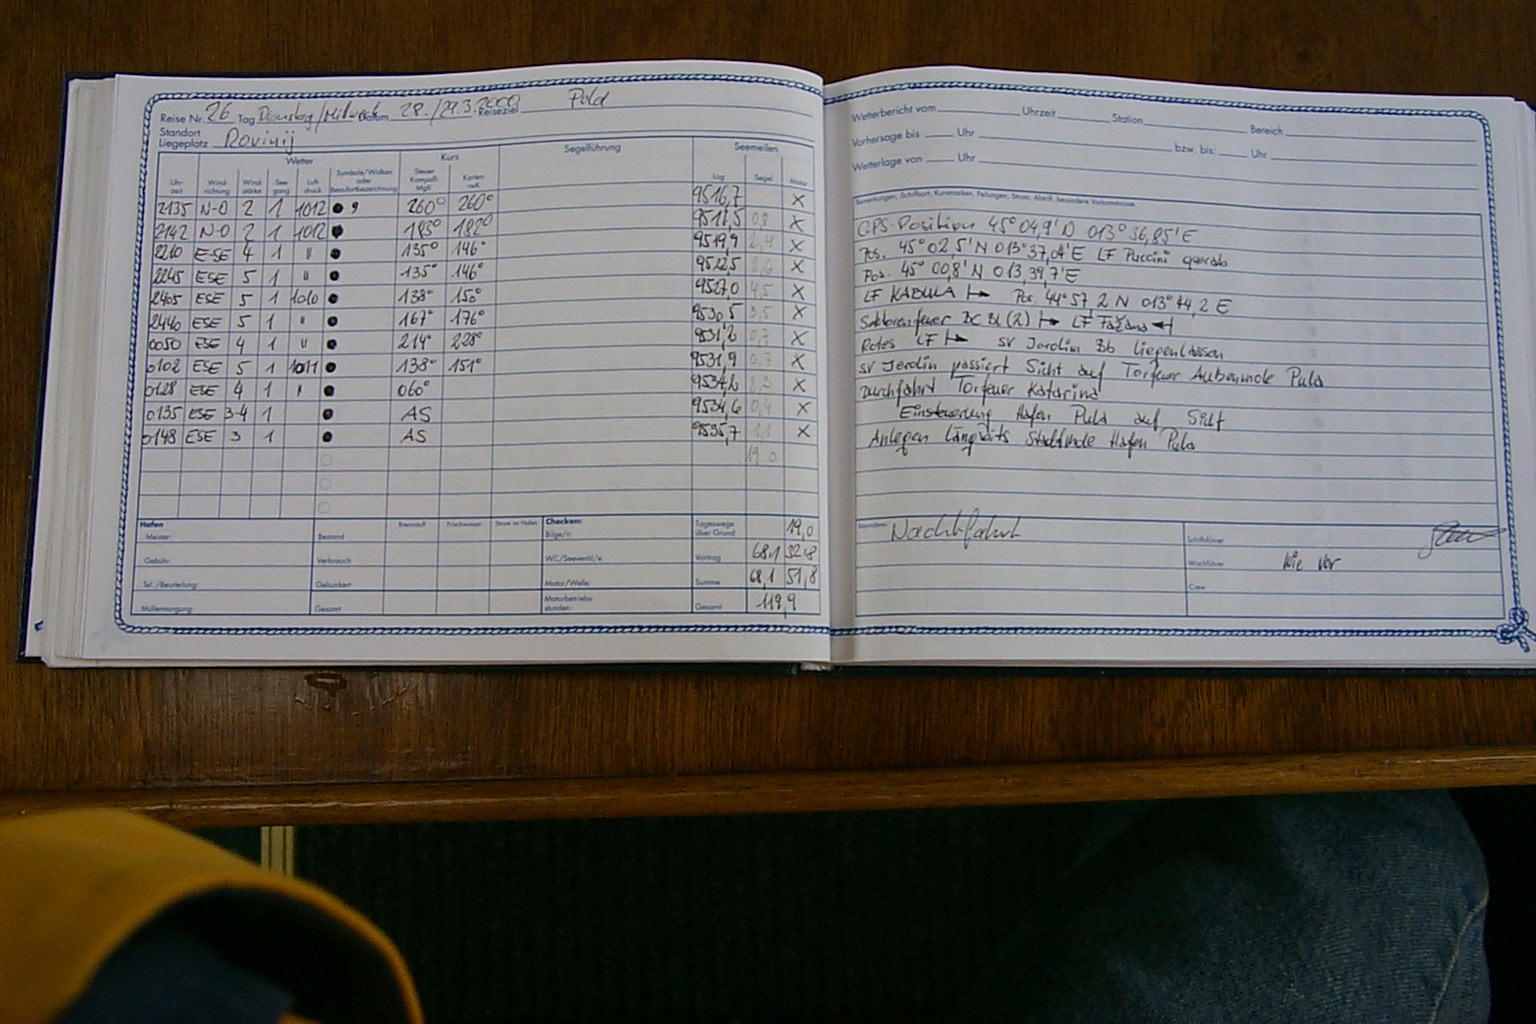 Reise Nr. 26 Tag Dienstag/Mittwoch Datum 28./29.3.2000 Reiseziel Pula
Standort
Liegeplatz Rovinij
Wetter Kurs Segelführung Seemeilen
Uhrzeit Windrichtung Windstärke Seegang Luftdruck Symbole/Wolken oder Beaufortbezeichnung Steuer Kompaß MgK Karten rwK Log Segel Motor
2135 N-O 2 1 1012 260° 260° 9516,7 X
2142 N-O 2 1 1012 185° 182° X
2210 E-SE 4 1 " 135° 146° 9519,9 X
2245 ESE 5 1 " 135° 146° 9522,5 2,6 X
2405 ESE 5 1 1010 138° 150° 9527,0 4,5 X
ESE 5 1 " 167° 176° 9530,5 3,5 X
0050 ESE 4 1 " 214° 228° 9531,2 0,7 X
0102 ESE 5 1 1011 138° 151° 9531,9 0,7 X
0128 ESE 4 1 " 060° 9534,2 2,3 X
0135 ESE 3-4 1 AS 9534,6 0,4 X
0148 ESE 3 1 AS 9535,7 1,1 X
19,0
Hafen Brennstoff Frischwasser Strom im Hafen Checken: Tageswege über Grund 19,0
Meister: Bestand Bilge/n:
Gebühr: Verbrauch WC/Seeventil/e: Vortrag 68,1 32,8
Tel./Beurteilung: Gebunkert Motor/Welle: Summe 68,1 51,8
Müllentsorgung: Gesamt Motorbetriebsstunden: Gesamt 119,9
Wetterbericht vom Uhrzeit Station Bereich
Vorhersage bis Uhr bzw. bis: Uhr
Wetterlage von Uhr
Bemerkungen, Schiffsort, Kursmarken, Peilungen, Strom, Abtrift, besondere Vorkommnisse
GPS-Position 45° 04,9' N 013° 36,85' E
Pos. 45° 02,5' N 013° 37,04' E LF Puccini querab
Pos. 45° 00,8' N 013,39,7' E
LF KABULA Pos. 44° 57,2 N 013° 44,2 E
Sektorenfeuer LF Fažana
Rotes LF SV Jerolin Bb liegenlassen
SV Jerolin passiert Sicht auf Torfeuer Außenmole Pula
Durchfahrt Torfeuer Katarina
Einsteuerung Hafen Pula auf Sicht
Anlegen längsseits Stadtmole Hafen Pula
Besonderes: Nachtfahrt Schiffsführer
Wachführer wie vor
Crew